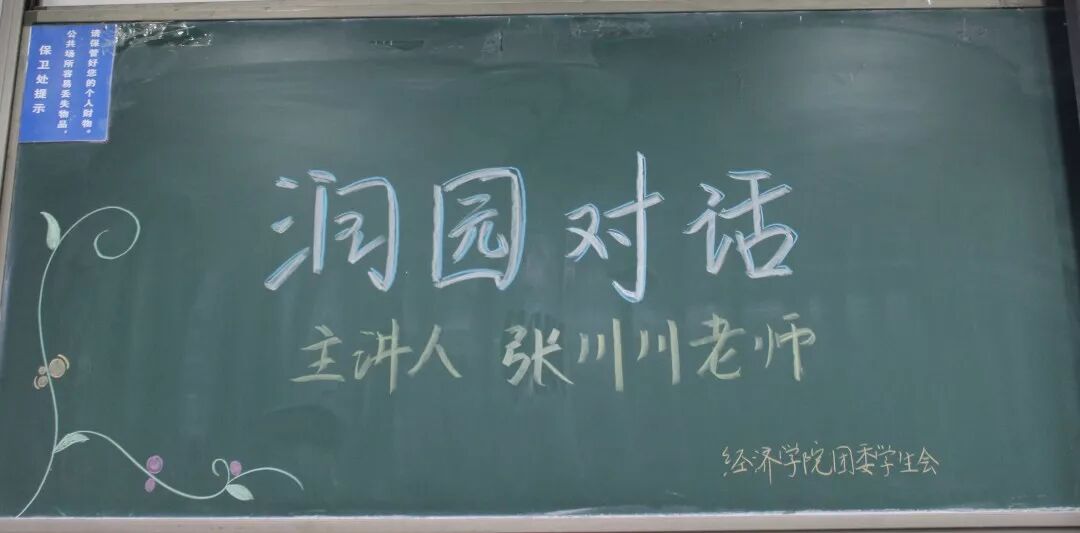 请保管好您的个人财物。
公共场所容易丢失物品，
保卫处提示
润园对话
主讲人 张川川老师
经济学院团委学生会